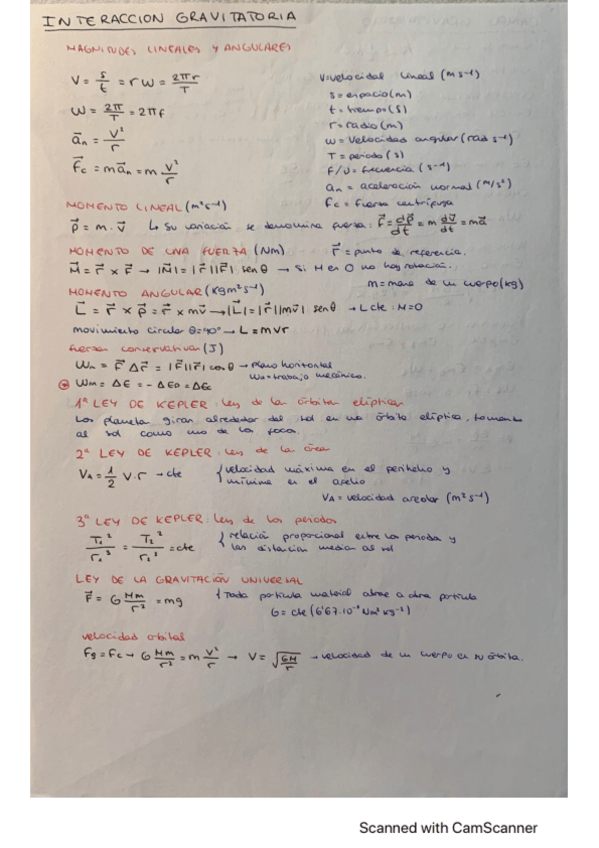 INTERACCION GRAVITATORIA
MAGNITUDES LINEALES Y ANGULARES
V = s/t = r w = 2πr/T
V: velocidad lineal (m s⁻¹)
s = espacio (m)
t = tiempo (s)
W = 2π/T = 2πf
r = radio (m)
w = velocidad angular (rad s⁻¹)
a⃗n = V²/r
T = periodo (s)
F/υ = frecuencia (s⁻¹)
F⃗c = m a⃗n = m V²/r
an = aceleración normal (m/s²)
Fc = fuerza centrífuga
MOMENTO LINEAL (m²s⁻¹)
p⃗ = m · v⃗ ↳ Su variación se denomina fuerza: F⃗ = dp⃗/dt = m dv⃗/dt = ma⃗
MOMENTO DE UNA FUERZA (Nm) r⃗ = punto de referencia.
M⃗ = r⃗ × F⃗ → |M⃗| = |r⃗||F⃗| sen θ → Si M es 0 no hay rotación.
MOMENTO ANGULAR (kg m² s⁻¹) m = masa de un cuerpo (kg)
L⃗ = r⃗ × p⃗ = r⃗ × mv⃗ → |L⃗| = |r⃗||mv⃗| sen θ → L cte : M=0
movimiento circular θ=90° → L = mvr
Fuerzas conservativas (J)
Wm = F⃗ Δr⃗ = |F⃗||r⃗| cos θ → plano horizontal
Wm = trabajo mecánico.
Wm = ΔE = -ΔEp = ΔEc
1ª LEY DE KEPLER: Ley de las órbitas elípticas
Los planetas giran alrededor del sol en una órbita elíptica, tomando
al sol como uno de los focos.
2ª LEY DE KEPLER: Ley de las áreas
VA = 1/2 V · r → cte { velocidad máxima en el perihelio y
mínima en el afelio
VA = velocidad areolar (m² s⁻¹)
3ª LEY DE KEPLER: Ley de los periodos
T₁²/r₁³ = T₂²/r₂³ = cte { relación proporcional entre los periodos y
las distancias medias al sol
LEY DE LA GRAVITACIÓN UNIVERSAL
F⃗ = G Mm/r² = mg { Toda partícula material atrae a otra partícula
G = cte
velocidad orbital
Fg = Fc → G Mm/r² = m V²/r → V = √GM/r → velocidad de un cuerpo en su órbita.
Scanned with CamScanner